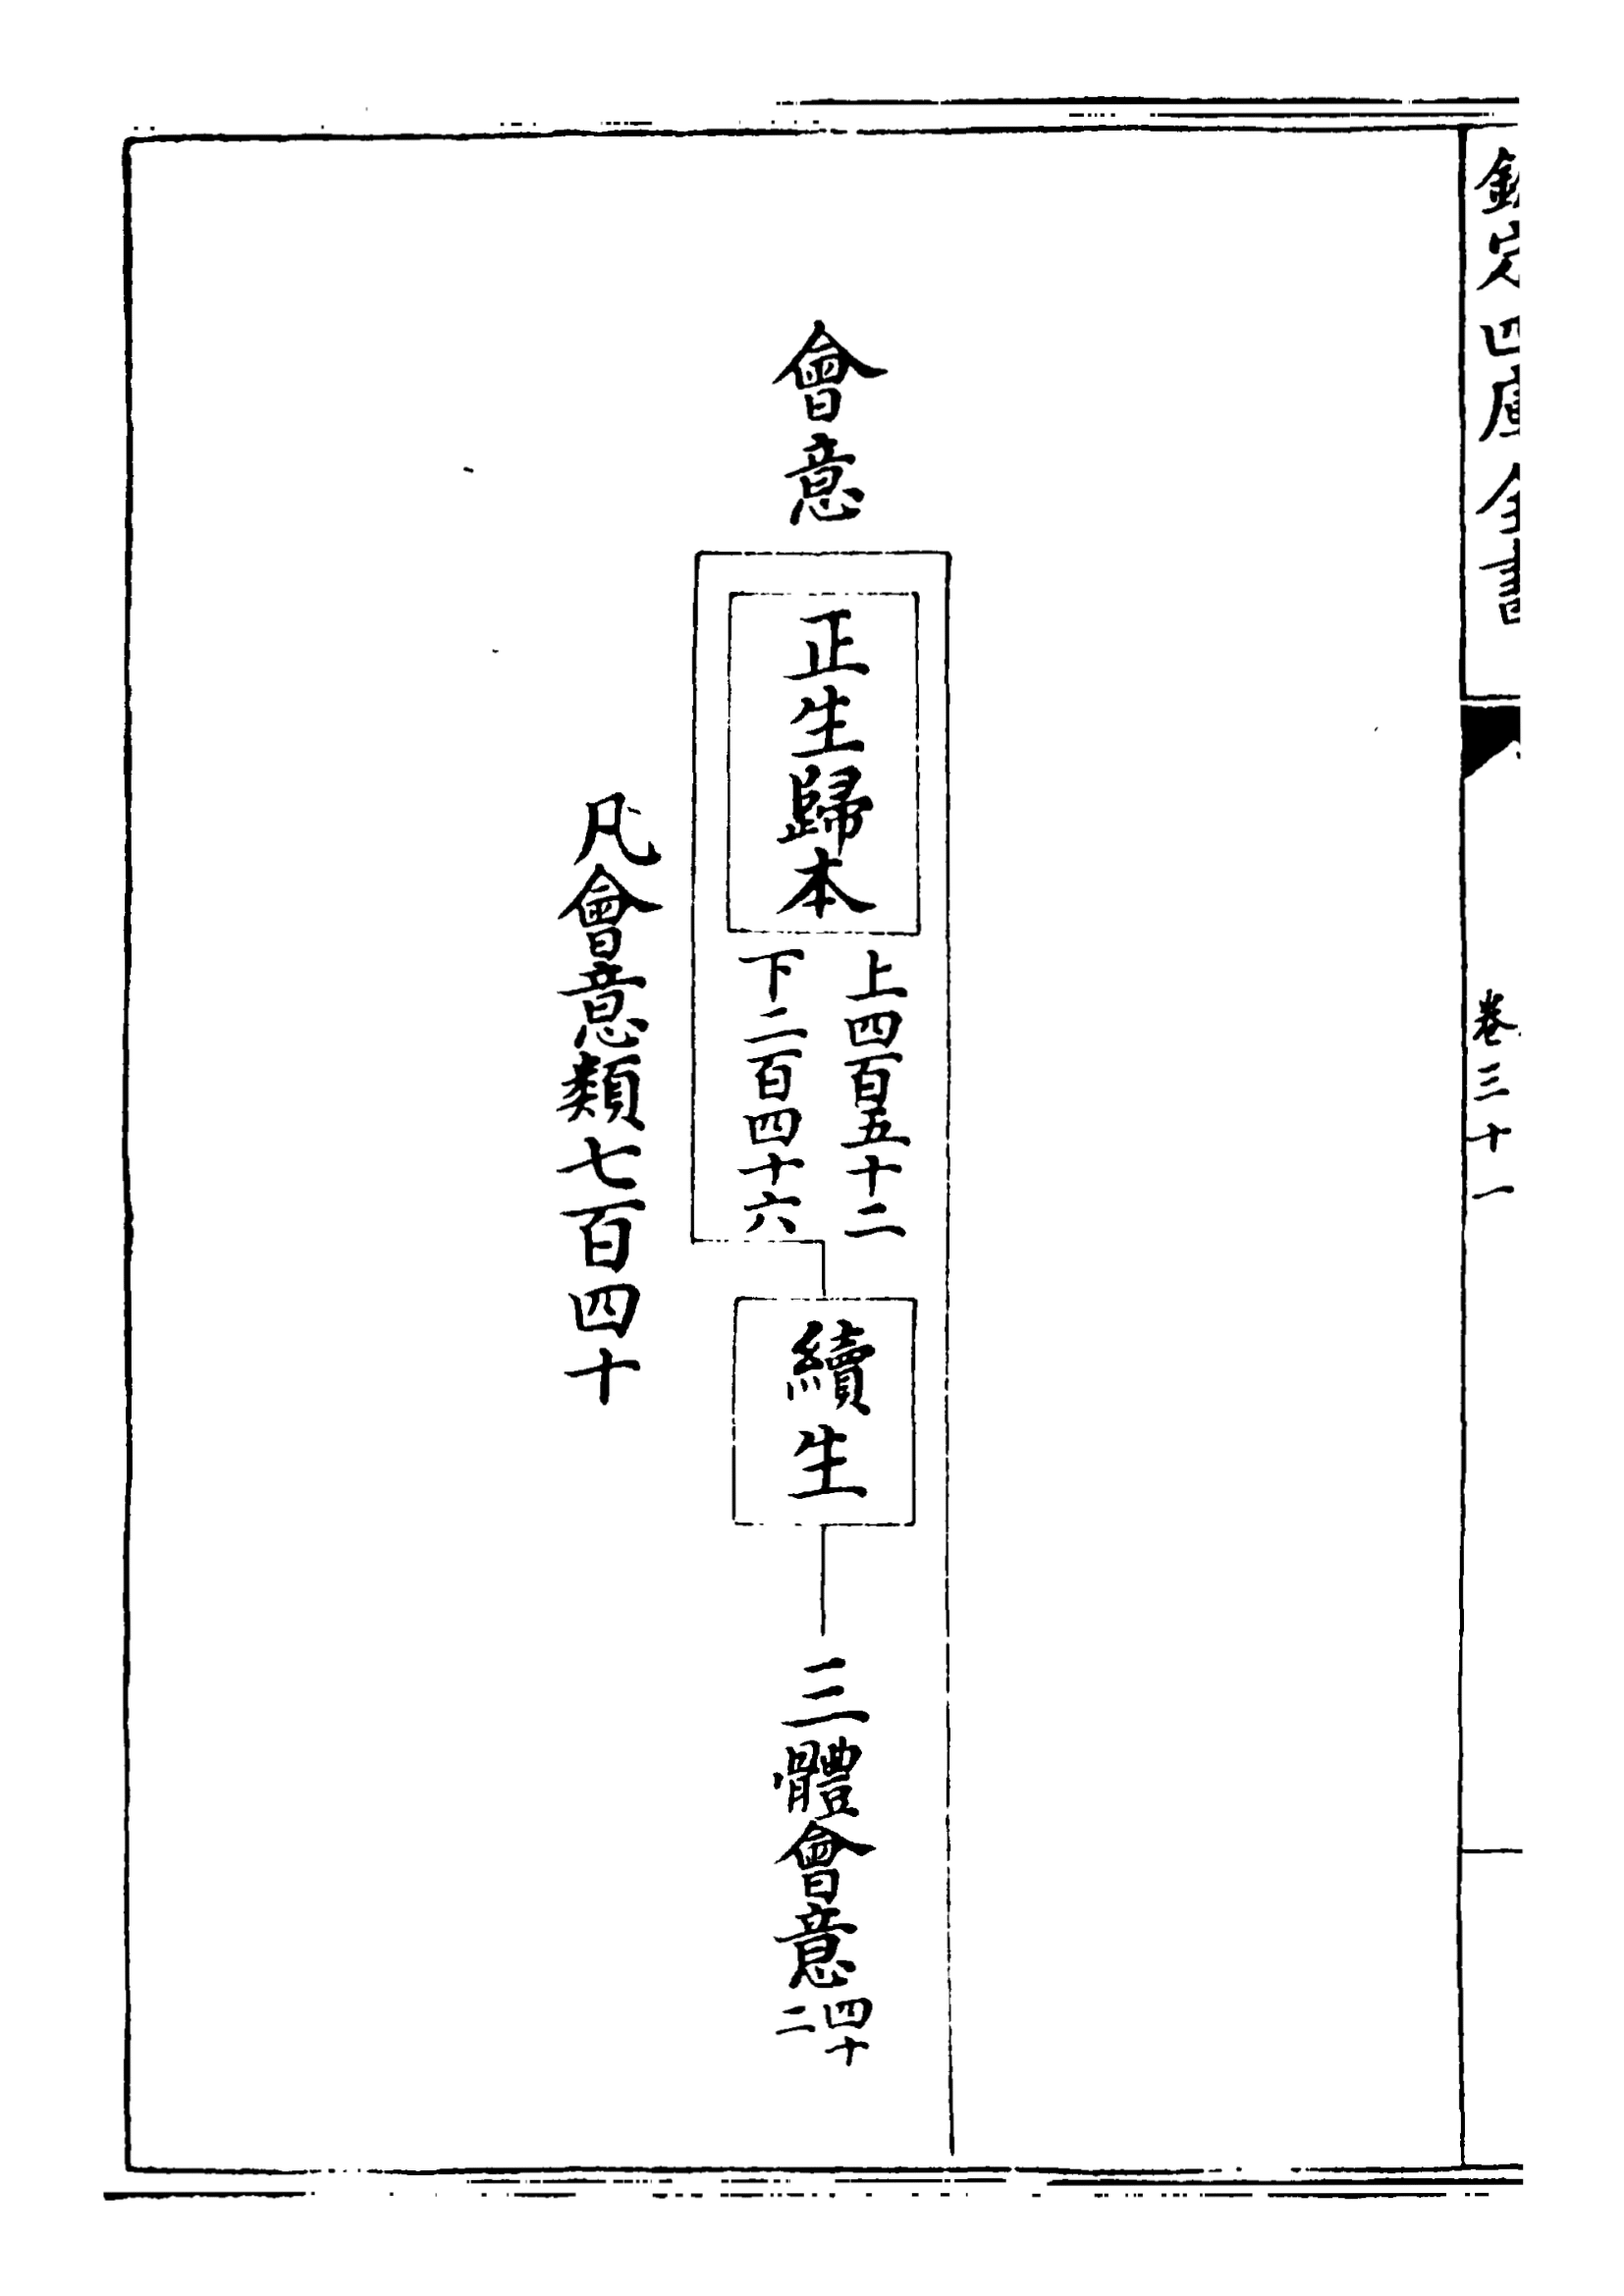 欽定四庫全書
卷三十一
會意
正生歸本
上四百五十二
下二百四十六
續生
三體會意
四十
二
凡會意類七百四十